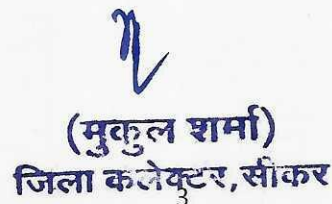 (मुकुल शर्मा)
जिला कलेक्टर,सीकर
3